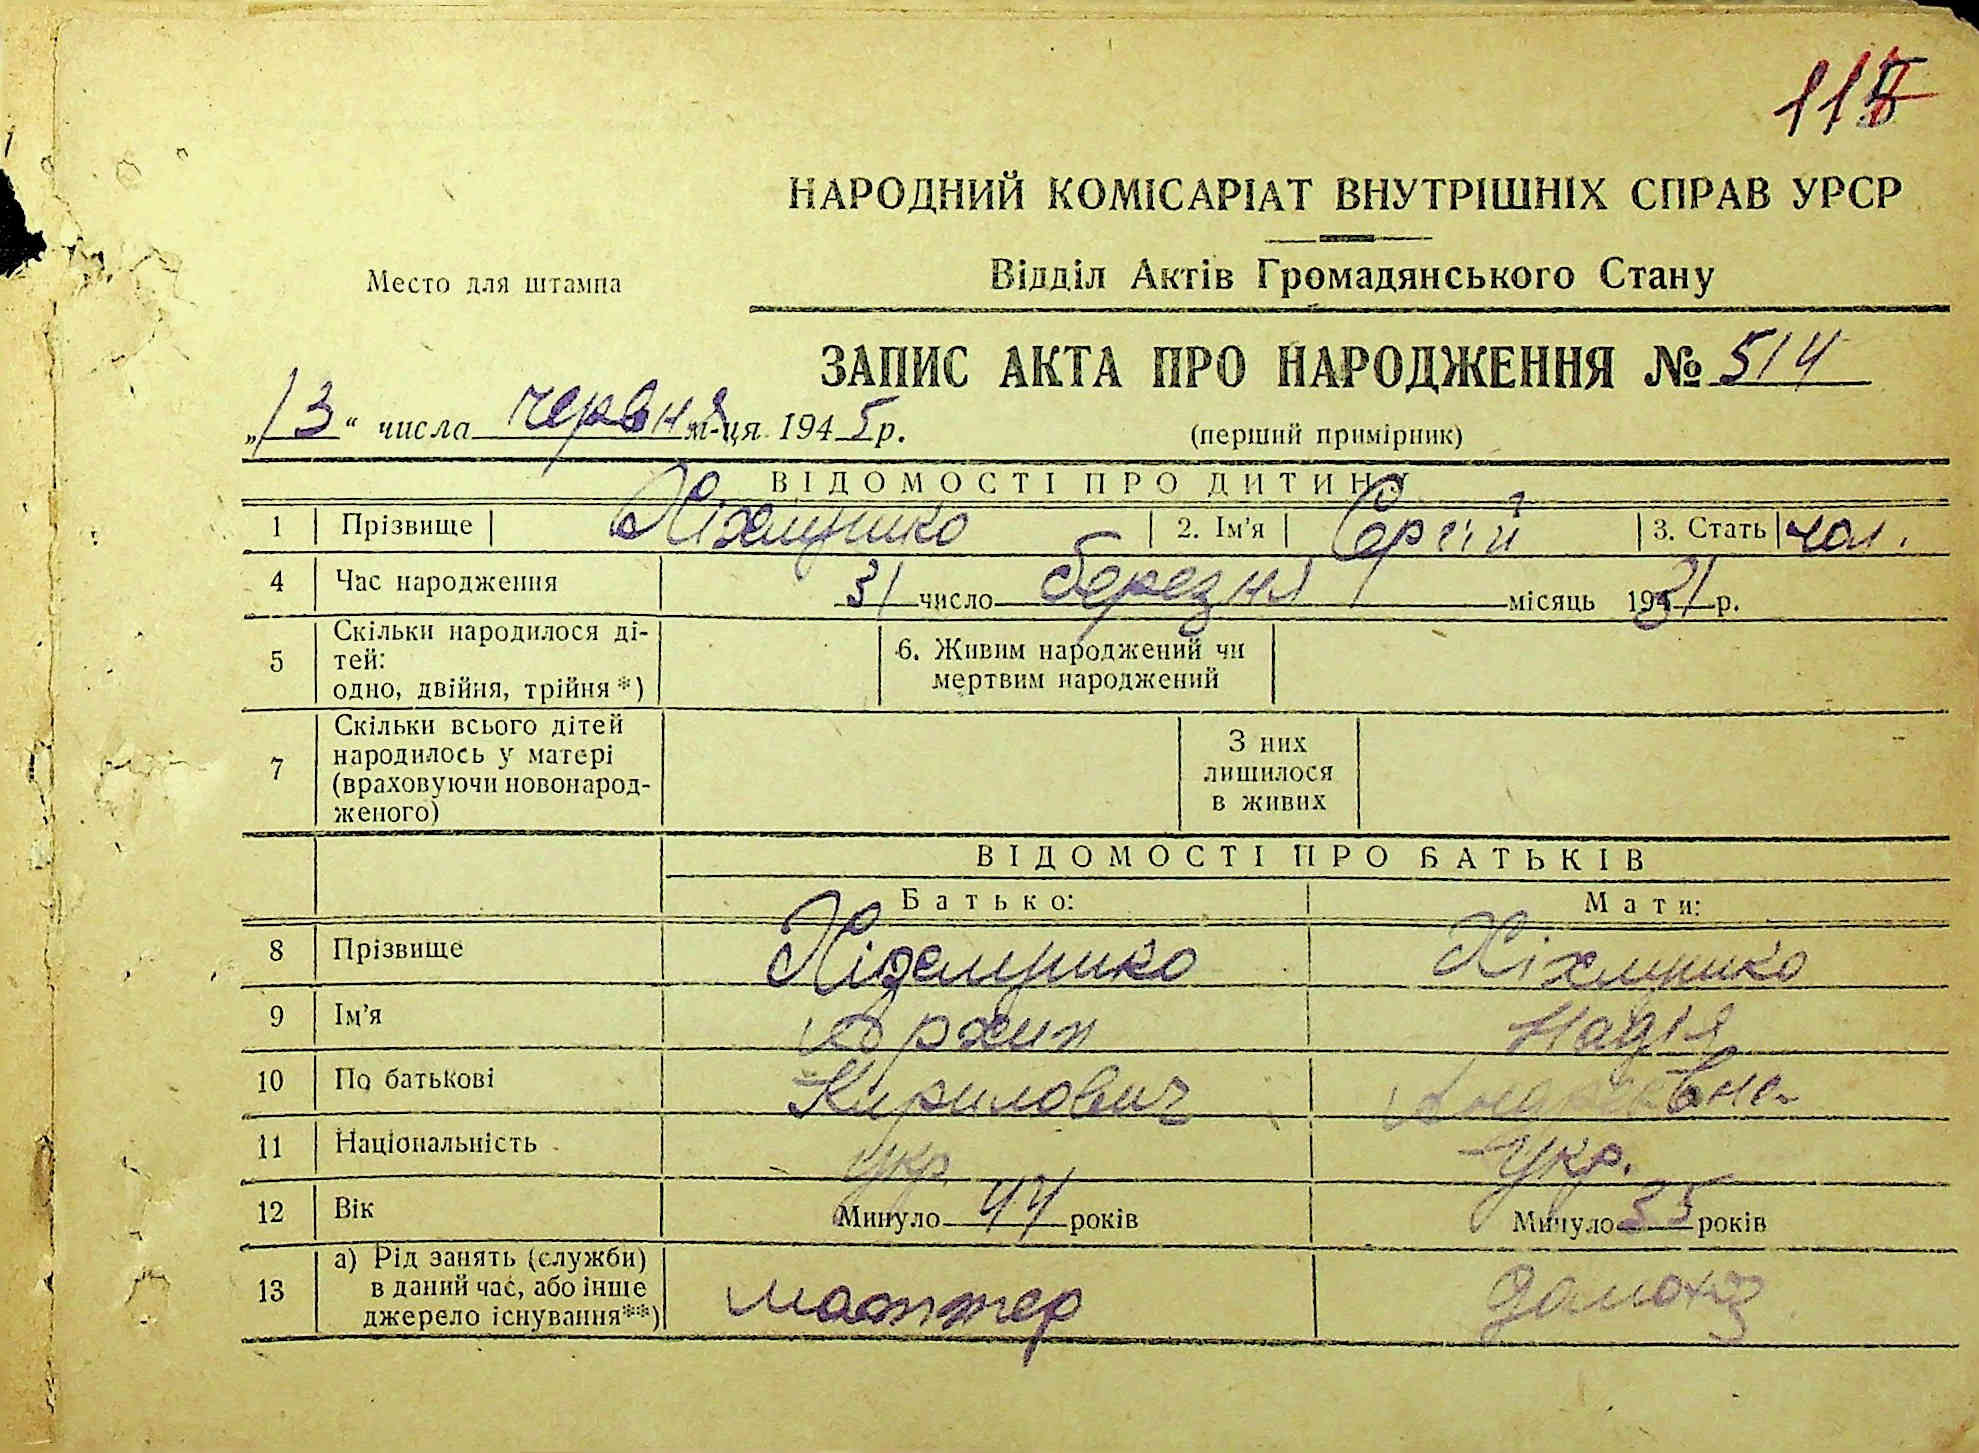 115
НАРОДНИЙ КОМІСАРІАТ ВНУТРІШНІХ СПРАВ УРСР
Место для штампа
Відділ Актів Громадянського Стану
ЗАПИС АКТА ПРО НАРОДЖЕННЯ № 514
„13“ числа червня м-ця 1945 р.
(перший примірник)
ВІДОМОСТІ ПРО ДИТИНУ
1 Прізвище 2. Ім'я Сергій 3. Стать чол.
4 Час народження 31 число березня місяць 1931 р.
5 Скільки народилося ді-
тей:
одно, двійня, трійня *)
6. Живим народжений чи
мертвим народжений
7 Скільки всього дітей
народилось у матері
(враховуючи новонарод-
женого)
З них
лишилося
в живих
ВІДОМОСТІ ПРО БАТЬКІВ
Батько: Мати:
8 Прізвище
9 Ім'я Архип Надія
10 По батькові Кирилович Андреевна
11 Національність укр. Укр.
12 Вік Минуло 44 років Минуло 35 років
13 а) Рід занять (служби)
в даний час, або інше
джерело існування**)
маоттер